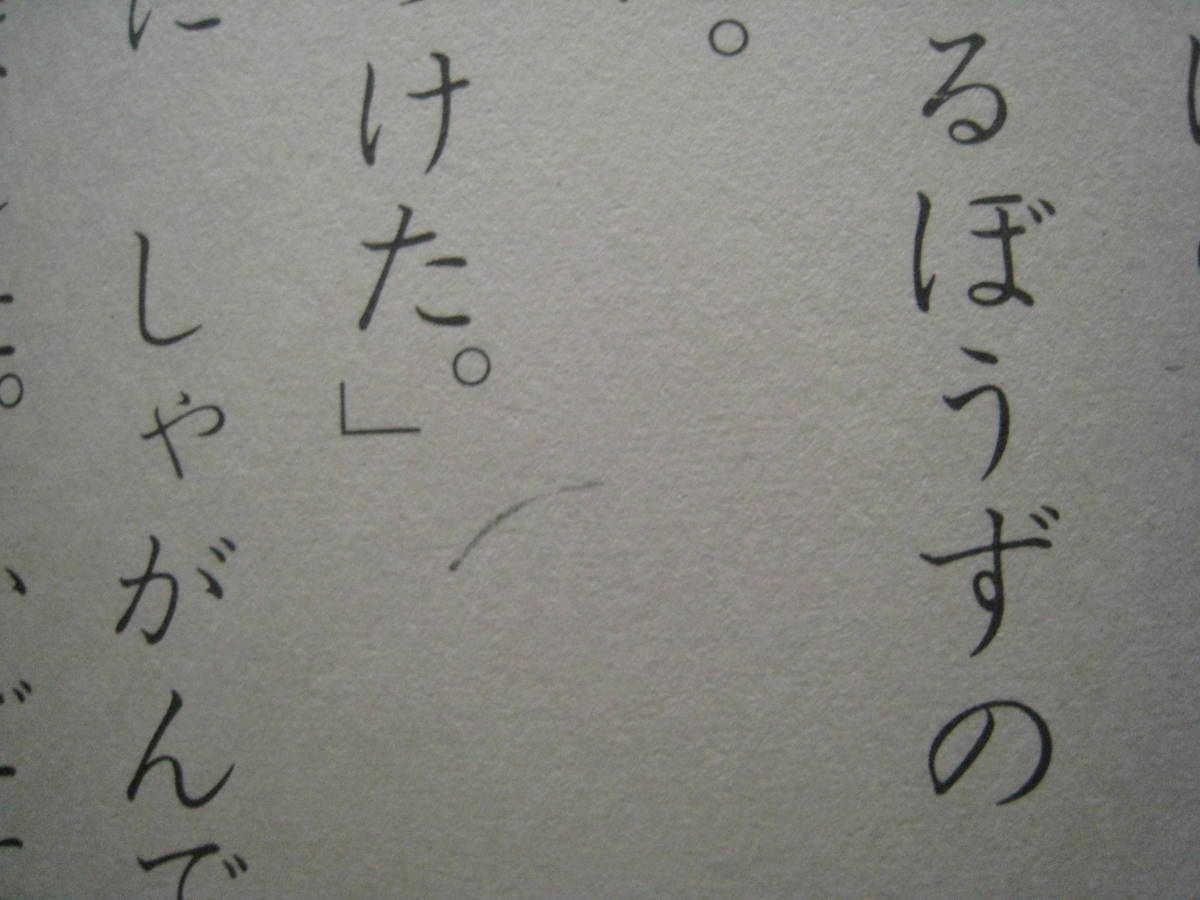 るぼうずの
。
けた。」
に しゃがんで